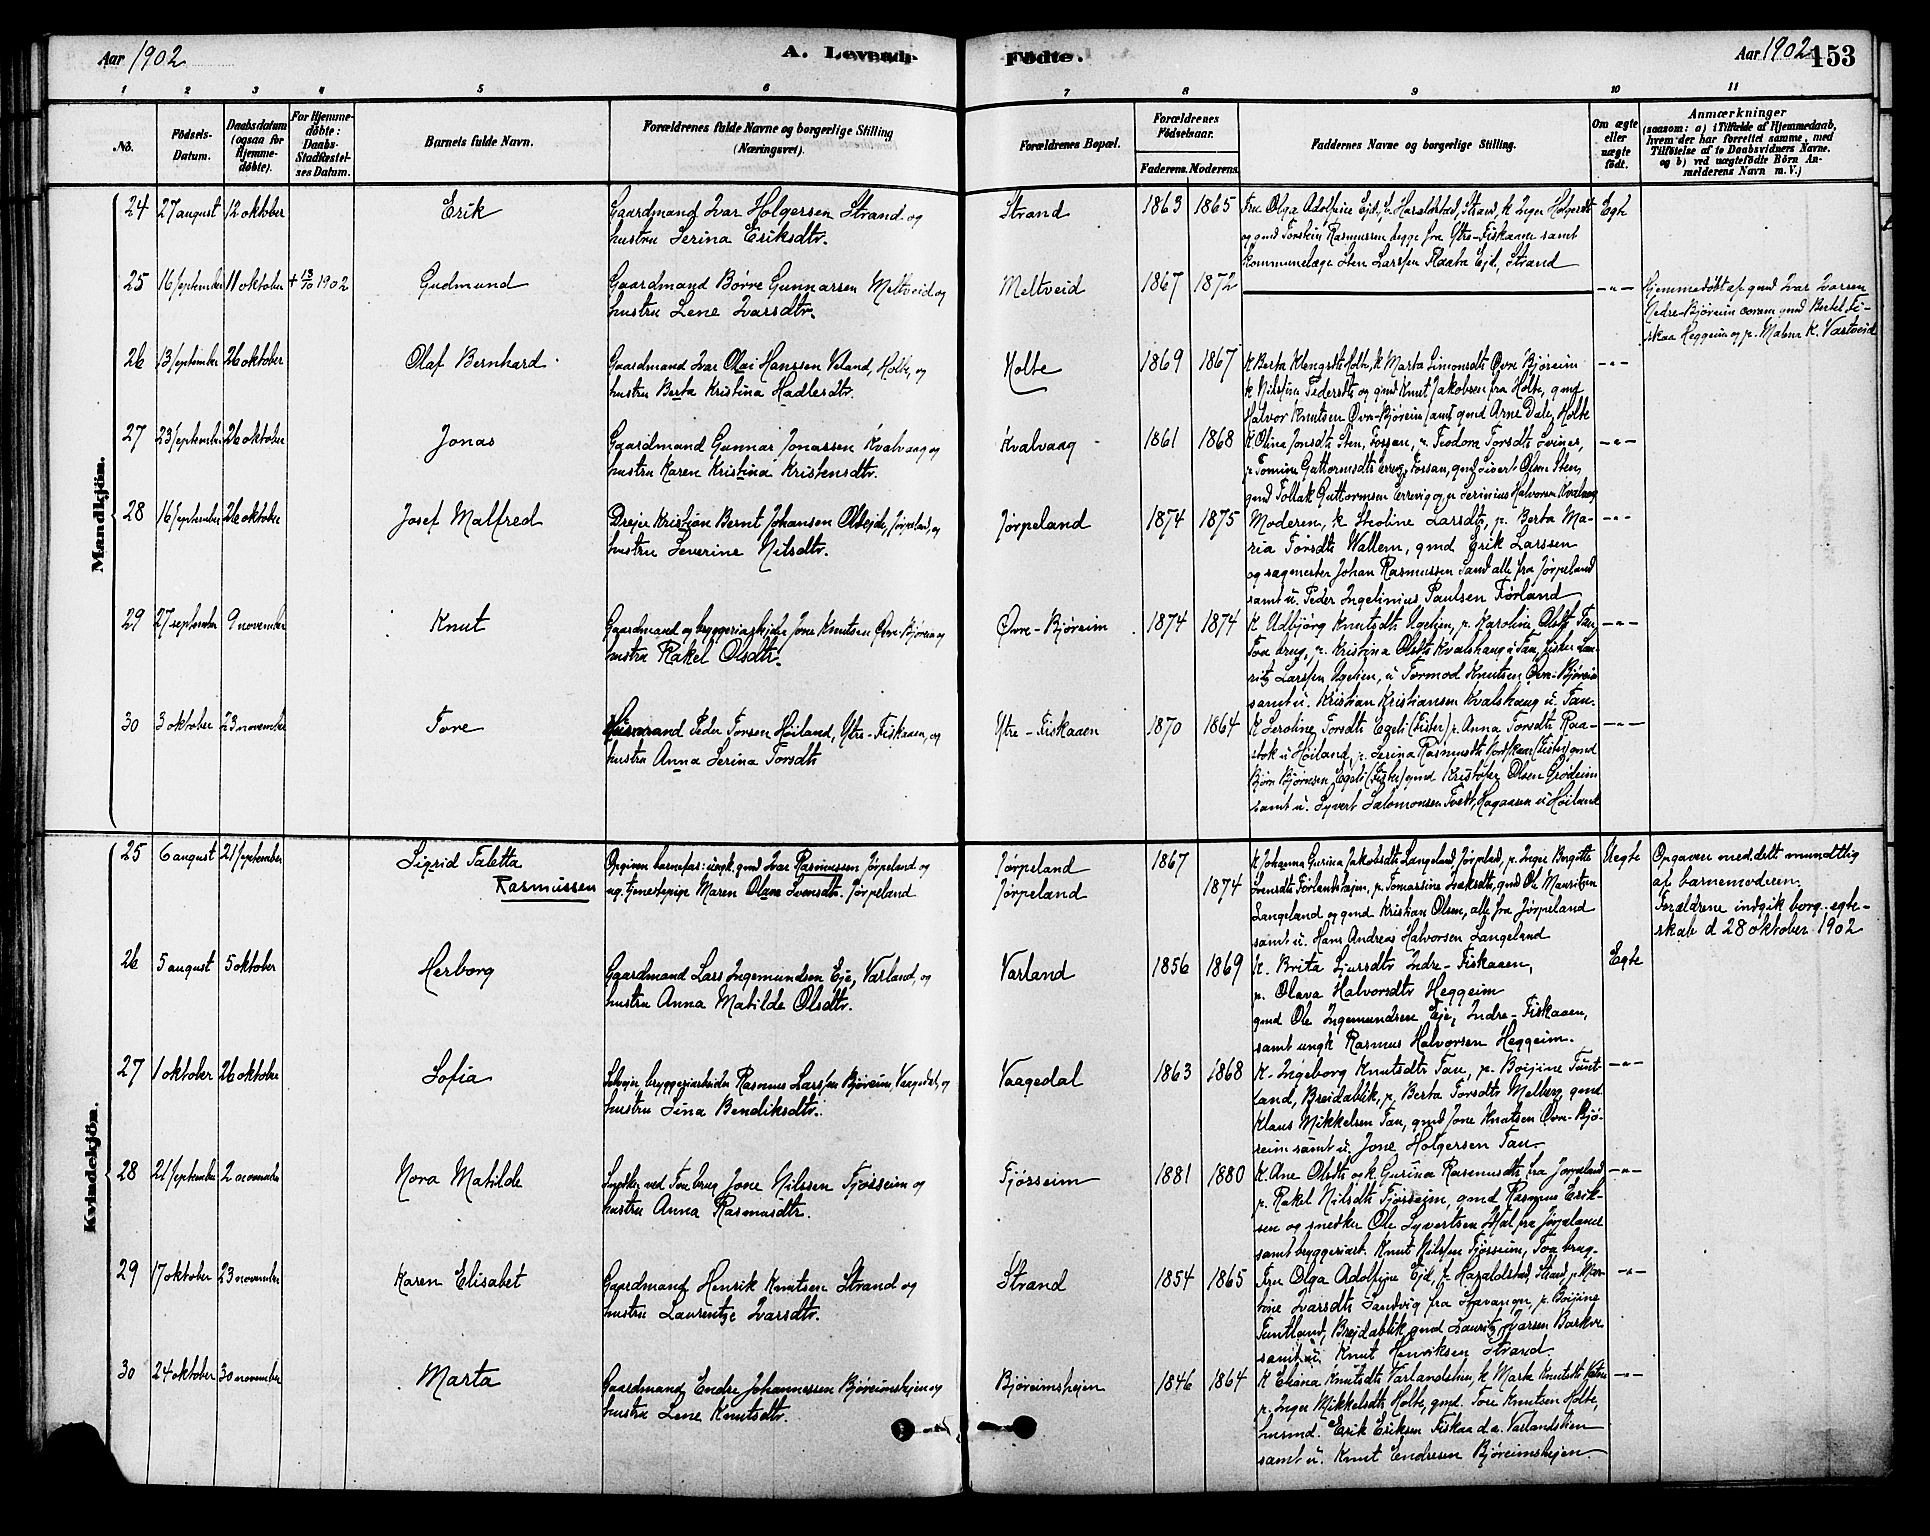 Aar 1902
A. Levende
Fødte.
Aar 1902
153
1 2 3 4 5 6 7 8 9 10 11
No.
Fødsels-
Datum.
Daabsdatum
(ogsaa for
Hjemme-
døbte).
For Hjemme-
døbte:
Daabs-
Stadfæstel-
ses Datum.
Barnets fulde Navn.
Forældrenes fulde Navne og borgerlige Stilling
(Næringsvei).
Forældrenes Bopæl.
Forældrenes
Fødselsaar.
Faderens. Moderens.
Faddernes Navne og borgerlige Stilling.
Om ægte
eller
uægte
født.
Anmærkninger
(saasom: a) i Tilfælde af Hjemmedaab,
hvem der har forrettet samme, med
Tilføielse af to Daabsvidners Navne,
og b) ved uægtefødte Børn An-
melderens Navn m. V.)
Mandkjön.
24 27 august 12 oktober Erik
Gaardmand Ivar Holgersen Strand og
hustru Serina Eriksdtr.
Strand 1863 1865
Fru Olga Adolfine Ejd, f. Haraldstad, Strand, k Inger Holgersdt
og gmd Torstein Rasmussen begge fra Ytre-Fiskaaen samt
Kommunelæge Sten Larssen Ejd, Strand
Egte
25 16 september 11 oktober + 13/10 1902 Gudmund
Gaardmand Børre Gunnarsen Meltveid og
hustru Lene Ivarsdtr.
Meltveid 1867 1872 -"-
Hjemmedøbt af gmd Ivar Ivarsen
Nedre-Bjøreim coram gmd Bertel Fi-
skaa Heggeim og p. Malena K. Vastveid
26 13 september 26 oktober Olaf Bernhard
Gaardmand Ivar Olai Hanssen Veland, Holte, og
hustru Berta Kristina Hadlesdtr.
Holte 1869 1867
K Berta Klengsdtr Holte, k Marta Simonsdt Øvre Bjøreim
k Nilsina Pedersdtr og gmd Knut Jakobsen fra Holte, gmd
Halvor Knutsen Øvre-Bjøreim samt gmd Arne Dale, Holte
-"-
27 23 september 26 oktober Jonas
Gaardmand Gunnar Jonassen Kvalvaag og
hustru Karen Kristina Kristensdtr.
Kvalvaag 1861 1868
K Olina Jonsdt Sten, Fossan, p. Teodora Torsdt
p. Tomine Guttormsdt Fossan, gmd Sivert Olsen Sten,
gmd Tollak Guttormsen Errevig og u Serinius Halvorsen Kvalvaag
-"-
28 16 september 26 oktober Josef Malfred
Drejer Kristian Bernt Johansen Jørpeland, og
hustru Severine Nilsdtr.
Jørpeland 1874 1875
Moderen, k Larsdt, p. Berta Ma-
ria Torsdt Wallem, gmd Erik Larssen
og sagmester Johan Rasmussen Sand alle fra Jørpeland
samt u. Peder Ingelinius Paulsen Førland
-"-
29 27 september 9 november Knut
Gaardmand og bryggeriarbejder Jone Knutsen Øvre-Bjøreim og
hustru Rakel Olsdtr.
Øvre-Bjøreim 1874 1874
K Udbjørg Knutsdt p. Karoline Olsdt Tau,
Tou brug, p. Kristina Olsdt Kvalshaug u Tau, fisker Lau-
ritz Larssen u Tormod Knutsen Øvre-Bjøreim
samt u. Kristian Kristiansen Kvalshaug u. Tau.
-"-
30 3 oktober 23 november Tore
Husmand Peder Torsen Høiland, Ytre-Fiskaaen, og
hustru Anna Serina Torsdt
Ytre-Fiskaaen 1870 1864
K Seroline Torsdt Egeli (Fister) p. Anna Torsdt Raa-
stok u Høiland, p. Serina Rasmusdt (Fister) gmd
Bjørn Bjørnsen Egeli (Fister) gmd Kristofer Olsen Grødeim
samt u. Syvert Salomonsen Tveit, Hagaasen u Høiland
-"-
Kvindekjön.
25 6 august 21 september Sigrid Taletta
Rasmussen
Opgiven barnefar: ungk. gmd Ivar Rasmussen Jørpeland og
ug. tjenestepige Maren Olava Svensdtr. Jørpeland
Jørpeland
Jørpeland
1867
1874
K Johanna Gurina Jakobsdt Langeland, Jørpeland, p. Inger Bergitte
Svensdt Førlandshejen, p. Tomassine Isaksdt, gmd Ole Mauritzen
Langeland og gmd Kristian Olsen, alle fra Jørpeland
samt u. Hans Andreas Halvorsen Langeland
Uegte
Opgaven meddelt mundtlig
af barnemoderen.
Forældrene indgik borg. egte-
skab d 28 oktober 1902
26 5 august 5 oktober Herborg
Gaardmand Lars Ingemundsen Eje, Varland, og
hustru Anna Matilde Olsdtr.
Varland 1856 1869
K. Brita Sjursdtr Indre-Fiskaaen,
p. Olava Halvorsdtr Heggeim
gmd Ole Ingemundsen Eje, Indre-Fiskaaen,
samt ungk Rasmus Halvorsen Heggeim.
Egte
27 1 oktober 26 oktober Sofia
Selvejer, bryggeriarbeider Rasmus Larssen Bjøreim, Vaagedal, og
hustru Sina Bendiksdtr.
Vaagedal 1863 1868
K. Ingeborg Knutsdtr Tau, p. Boijine Tunt-
land, Breidablik, p. Berta Torsdtr Melberg, gmd
Klaus Mikkelsen Tau, gmd Jone Knutsen Øvre-Bjø-
reim samt u. Jone Holgersen Tau
-"-
28 21 september 2 november Nora Matilde
Snedker ved Tou brug Jone Nilssen Tjøsseim og
hustru Anna Rasmusdtr.
Tjøsseim 1881 1880
K. Ane Olsdt og k Gurina Rasmusdt fra Jørpeland
p. Rakel Nilsdt Tjøsseim, gmd Rasmus Erik-
sen og snedker Ole Syvertsen fra Jørpeland
samt bryggeriarb. Knut Nilssen Tjøsseim, Tou brug
-"-
29 17 oktober 23 november Karen Elisabet
Gaardmand Henrik Knutsen Strand og
hustru Laurentze Ivarsdtr.
Strand 1854 1865
Fru Olga Adolfine Ejd, f. Haraldstad Strand, p Mar-
tine Ivarsdt Sandvig fra Stavanger, p. Boijine
Tuntland, Brejdablik, gmd Lauritz Ivarsen Barkve
samt u. Knut Henriksen Strand
-"-
30 24 oktober 30 november Marta
Gaardmand Endre Johannessen Bjøreimshejen og
hustru Lene Knutsdtr.
Bjøreimshejen 1846 1864
K Eliana Knutsdt Varlandshien, k Marta Knutsdt
p. Inger Mikkelsdt Holte, gmd. Tore Knutsen Holte,
husmd. Erik Eriksen Fiskaa d.a. Varlandshien
samt u. Knut Endresen Bjøreimshejen
-"-